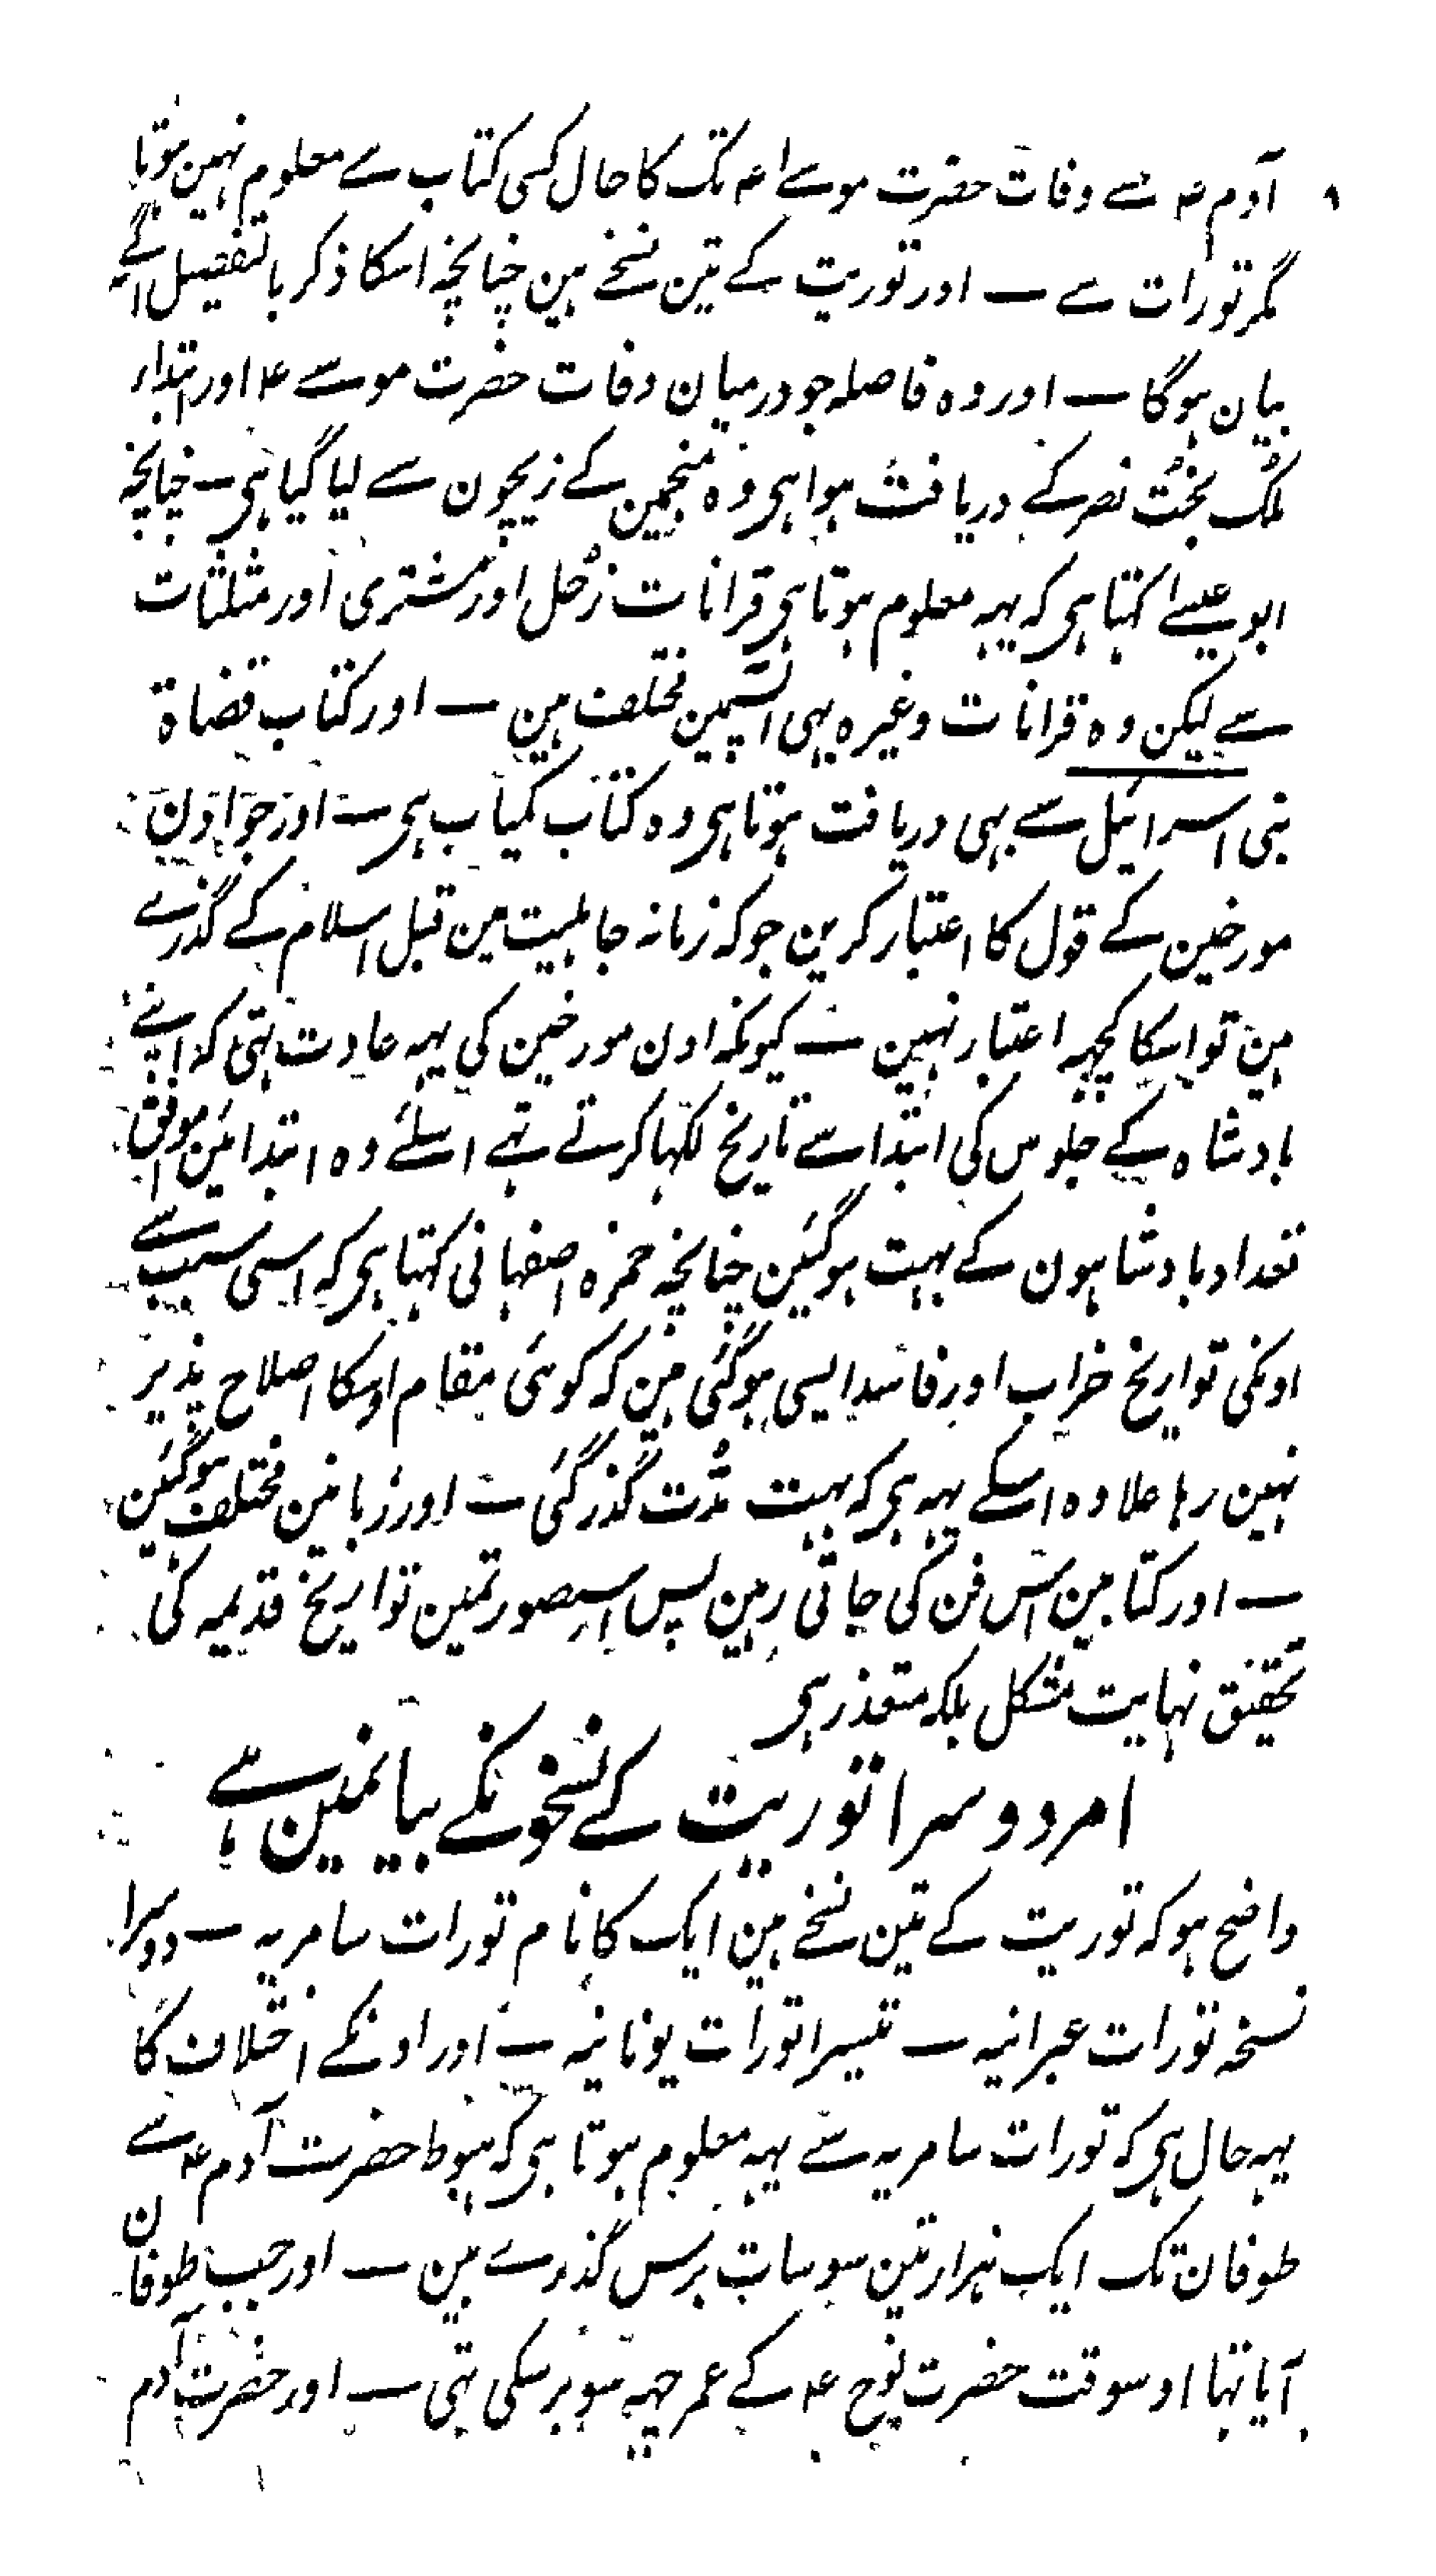 آدم ۴ سے وفات حضرت موسےٰ ۴ تک کا حال کسی کتاب سے معلوم نہین ہوتا
مگر تورات سے ــ اور توریت کے تین نسخے ہین چنانچہ اسکا ذکر بالتفصیل آگے
بیان ہوگا ــ اور وہ فاصلہ جو درمیان وفات حضرت موسے ۴ اور ابتداء
ملک بخت نصر کے دریافت ہوا ہی وہ منجمین کے زیچون سے لیا گیا ہی ــ چنانچہ
ابو عیسےٰ کہتا ہی کہ یہہ معلوم ہوتا ہی قرانات زحل اور مشتری اور مثلثات
سے لیکن وہ قرانات وغیرہ بہی اسمین مختلف ہین ــ اور کتاب قضاۃ
بنی اسرائیل سے بہی دریافت ہوتا ہی وہ کتاب کمیاب ہی ــ اور جو اون
مورخین کے قول کا اعتبار کرین جو کہ زمانہ جاہلیت مین قبل اسلام کے گذرے
ہین تو اسکا کچہہ اعتبار نہین ــ کیونکہ اون مورخین کی یہہ عادت تہی کہ اپنے
بادشاہ کے جلوس کی ابتدا سے تاریخ لکہا کرتے تہے اسلئے وہ ابتدائین موافق
تعداد بادشاہون کے بہت ہوگئین چنانچہ حمزہ اصفہانی کہتا ہی کہ اسی سبب سے
اونکی تواریخ خراب اور فاسد ایسی ہوگئی ہین کہ کوئی مقام اوسکا اصلاح پذیر
نہین رہا علاوہ اسکے یہہ ہی کہ بہت مدّت گذر گئی ــ اور زبانین مختلف ہوگئین
ــ اور کتابین اس فن کی جاتی رہین پس اسصورتمین تواریخ قدیمہ کی
تحقیق نہایت مشکل بلکہ متعذر ہی
امر دوسرا توریت کے نسخونکے بیانمین ہے
واضح ہو کہ توریت کے تین نسخے ہین ایک کا نام تورات سامریہ ــ دوسرا
نسخہ تورات عبرانیہ ــ تیسرا تورات یونانیہ ــ اور اونکے اختلاف کا
یہہ حال ہی کہ تورات سامریہ سے یہہ معلوم ہوتا ہی کہ ہبوط حضرت آدم ۴ سے
طوفان تک ایک ہزار تین سو سات برس گذرے ہین ــ اور جب طوفان
آیا تہا اوسوقت حضرت نوح ۴ کے عمر چہہ سو برسکی تہی ــ اور حضرت آدم